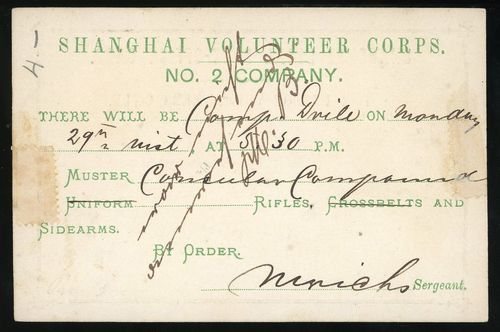 4.-
SHANGHAI VOLUNTEER CORPS.
NO. 2 COMPANY.
THERE WILL BE Comp. Drill ON Monday
29th inst AT 5.30 P.M.
MUSTER Consular Compound
UNIFORM RIFLES, CROSSBELTS AND
SIDEARMS.
BY ORDER.
Sergeant.